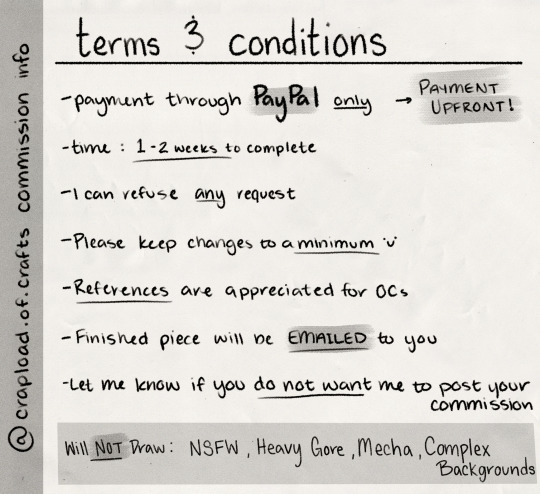 terms & conditions
-payment through PayPal only → PAYMENT
UPFRONT!
-time : 1-2 weeks to complete
-I can refuse any request
-Please keep changes to a minimum ü
-References are appreciated for OCs
-Finished piece will be EMAILED to you
-Let me know if you do not want me to post your
commission
Will NOT Draw: NSFW, Heavy Gore, Mecha, Complex
Backgrounds
@crapload.of.crafts commission info